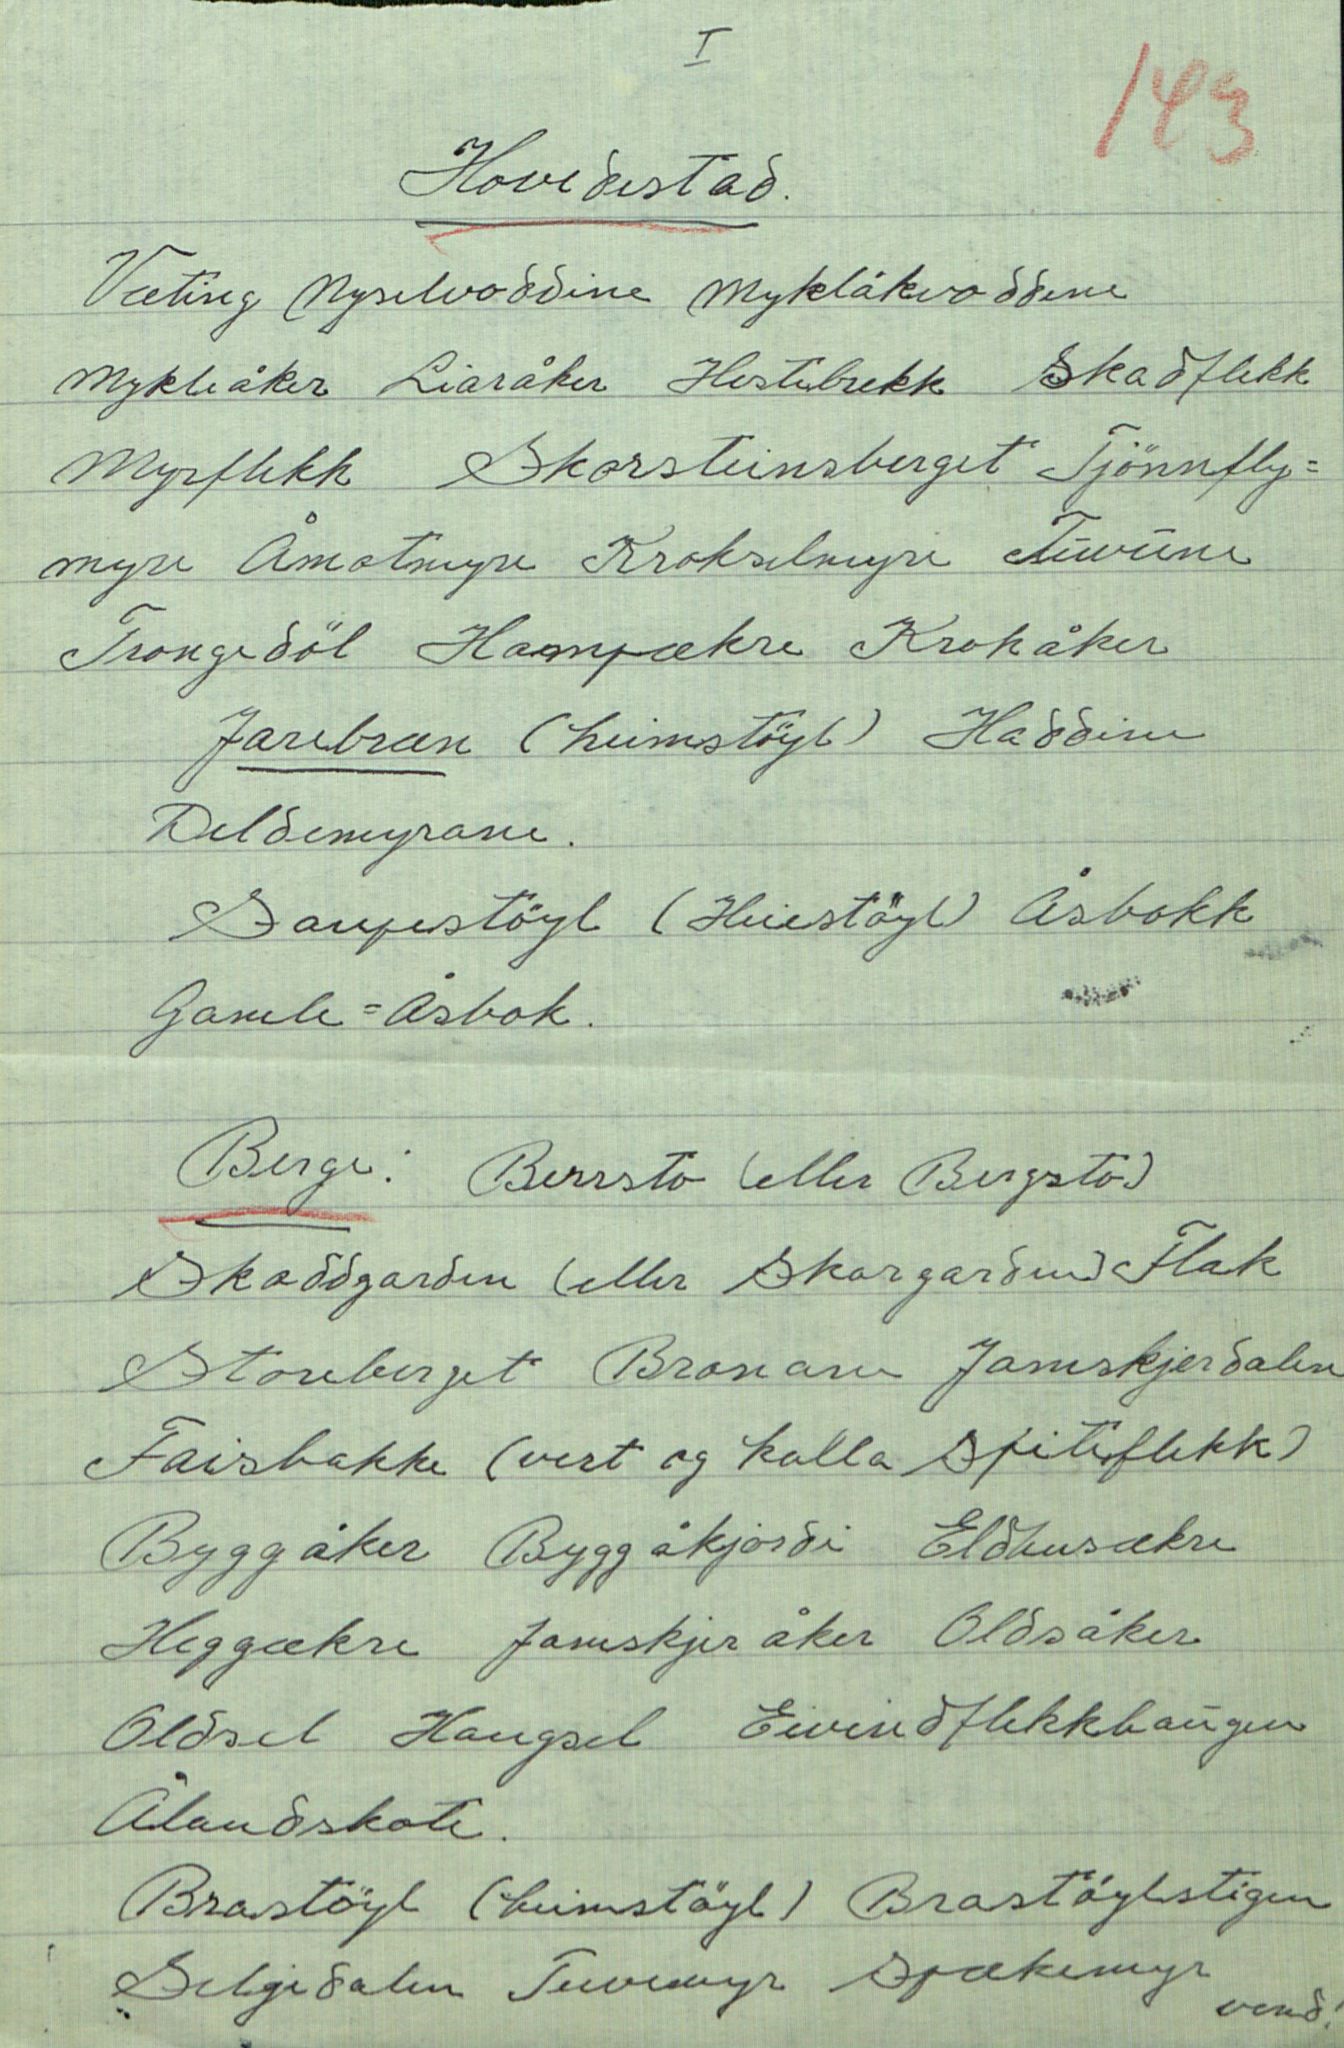 I
143
Hovdestad.
Væting Nyselvoddine Myklåkvoddene
Mykleåker Liaråker Hestebrekk Skadflekk
Myrflekk Skorsteinsberget Tjönnfly=
myre Åmotmyre Krokselmyre Tuvune
Trongedöl Hampækre Krokåker
Jarebræn (heimstöyl) Haddine
Deldemyrane.
Saupestöyl (Heiestöyl) Åsbokk
Gamle=Åsbok.
Berge: Berrstö (eller Bergstö)
Skaddgarden (eller Skorgarden) Flak
Storeberget Bronane Jamskjerdalen
Faisbakke (vert og kalla Spiteflekk)
Byggåker Byggåkjordi Eldhusækre
Heggækre Jamskjeråker Oldsåker
Oldsel Haugsel Eivindflekkhaugen
Ålandskote.
Brastöyl (heimstöyl) Brastöylstigen
Selgedalen Tuvemyr Spækemyr
vend!